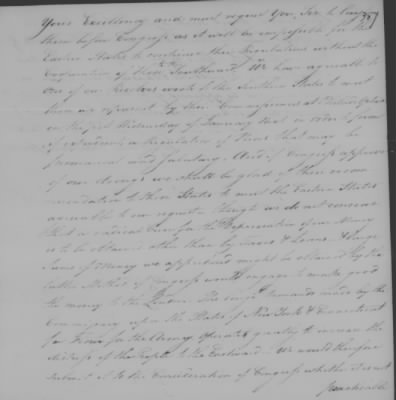 Your Excellency and must request You, Sir, to lay
them before Congress as it will be impossible for the
Eastern States to continue their Regulations without the
Cooperation of those Southward, We have agreeable to
one of our Resolves wrote to the Southern States to meet
them as represent by their Commissioners at Philadelphia
on the first Wednesday of January next in order to form
if expedient a Regulation of Prices that may be
permanent and salutary. And if Congress approve
of our doings we should be glad of their recom
mendation to those States to meet the Eastern States
agreeable to our request. though we do not conceive
that a radical Cure for the Depreciation of our Money
is to be obtained other than by Taxes & Loans & large
Sums of Money we apprehend might be obtained by the
latter Method if Congress would engage to make good
the money to the Lenders. The large demands made by the
Commissary upon the States of New York & Connecticut
for Flour for the Army operates greatly to increase the
distress of the People to the Eastward. We would therefore
submit it to the Consideration of Congress whether it is not